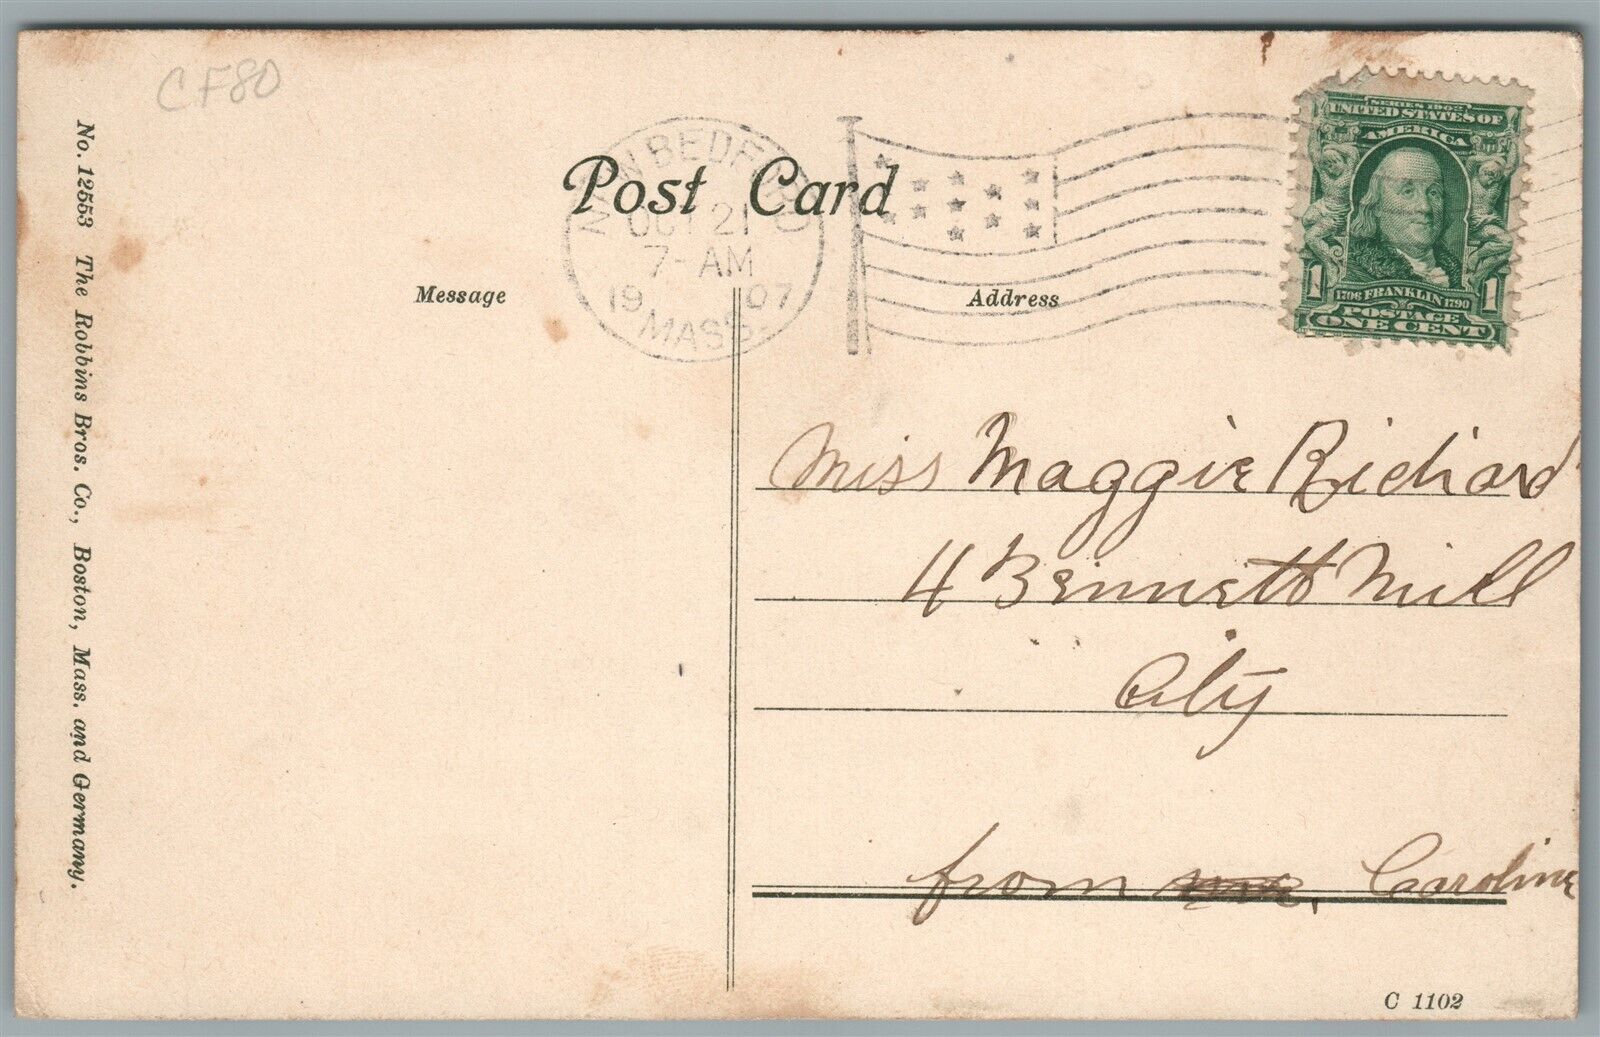 CF80
No. 12553 The Robbins Bros. Co., Boston, Mass. and Germany.
Post Card
NEW BEDFORD
OCT 21
7-AM
1907
MASS.
Message
Address
SERIES 1902
UNITED STATES OF
AMERICA
1 1
1706 FRANKLIN 1790
POSTAGE
ONE CENT
Miss Maggie Richard
4 Bennett Mill
City
from me, Caroline
C 1102